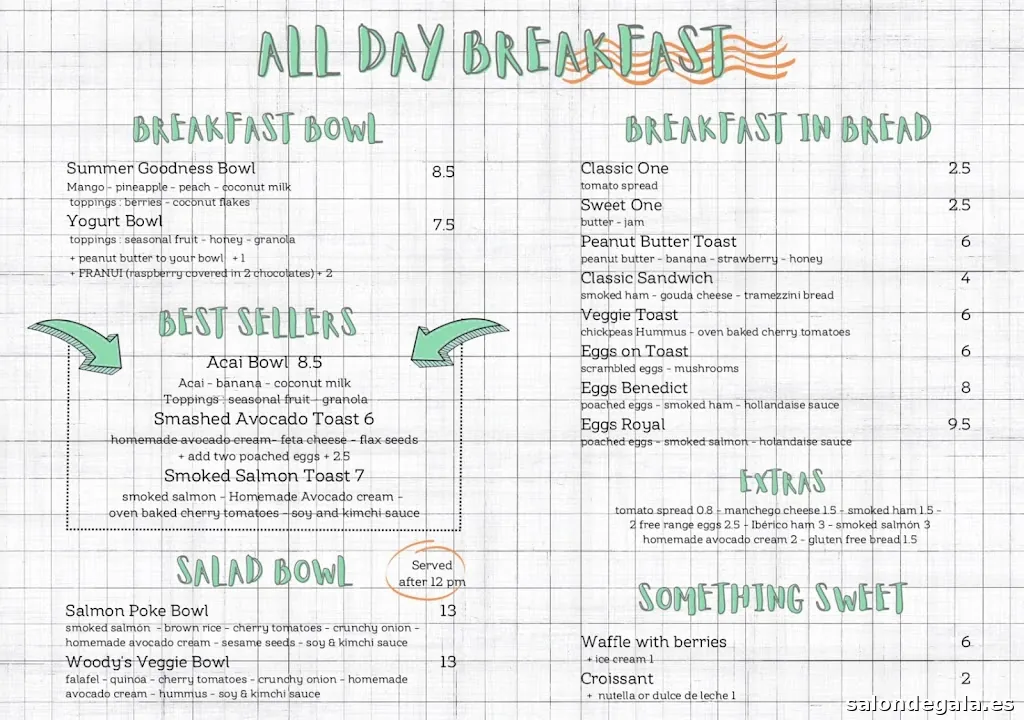 ALL DAY BREAKFAST
BREAKFAST BOWL
Summer Goodness Bowl 8.5
Mango - pineapple - peach - coconut milk
toppings : berries - coconut flakes
Yogurt Bowl 7.5
toppings : seasonal fruit - honey - granola
+ peanut butter to your bowl + 1
+ FRANUI (raspberry covered in 2 chocolates) + 2
BEST SELLERS
Acai Bowl 8.5
Acai - banana - coconut milk
Toppings : seasonal fruit - granola
Smashed Avocado Toast 6
homemade avocado cream- feta cheese - flax seeds
+ add two poached eggs + 2.5
Smoked Salmon Toast 7
smoked salmon - Homemade Avocado cream -
oven baked cherry tomatoes - soy and kimchi sauce
SALAD BOWL
Served
after 12 pm
Salmon Poke Bowl 13
smoked salmón - brown rice - cherry tomatoes - crunchy onion -
homemade avocado cream - sesame seeds - soy & kimchi sauce
Woody's Veggie Bowl 13
falafel - quinoa - cherry tomatoes - crunchy onion - homemade
avocado cream - hummus - soy & kimchi sauce
BREAKFAST IN BREAD
Classic One 2.5
tomato spread
Sweet One 2.5
butter - jam
Peanut Butter Toast 6
peanut butter - banana - strawberry - honey
Classic Sandwich 4
smoked ham - gouda cheese - tramezzini bread
Veggie Toast 6
chickpeas Hummus - oven baked cherry tomatoes
Eggs on Toast 6
scrambled eggs - mushrooms
Eggs Benedict 8
poached eggs - smoked ham - hollandaise sauce
Eggs Royal 9.5
poached eggs - smoked salmon - holandaise sauce
EXTRAS
tomato spread 0.8 - manchego cheese 1.5 - smoked ham 1.5 -
2 free range eggs 2.5 - Ibérico ham 3 - smoked salmón 3
homemade avocado cream 2 - gluten free bread 1.5
SOMETHING SWEET
Waffle with berries 6
+ ice cream 1
Croissant 2
+ nutella or dulce de leche 1
salondegala.es